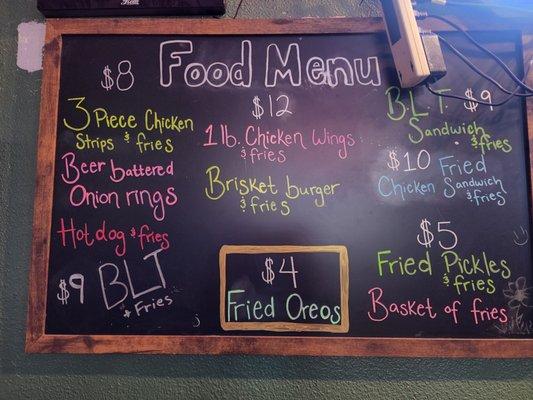 Food Menu
$8
3 Piece Chicken
Strips & fries
Beer battered
Onion rings
Hot dog & fries
$9 BLT
+ Fries
$12
1 lb. Chicken Wings
& fries
Brisket burger
& fries
$4
Fried Oreos
B.L.T. $9
Sandwich
& fries
$10 Fried
Chicken Sandwich
& fries
$5
Fried Pickles
& fries
Basket of fries